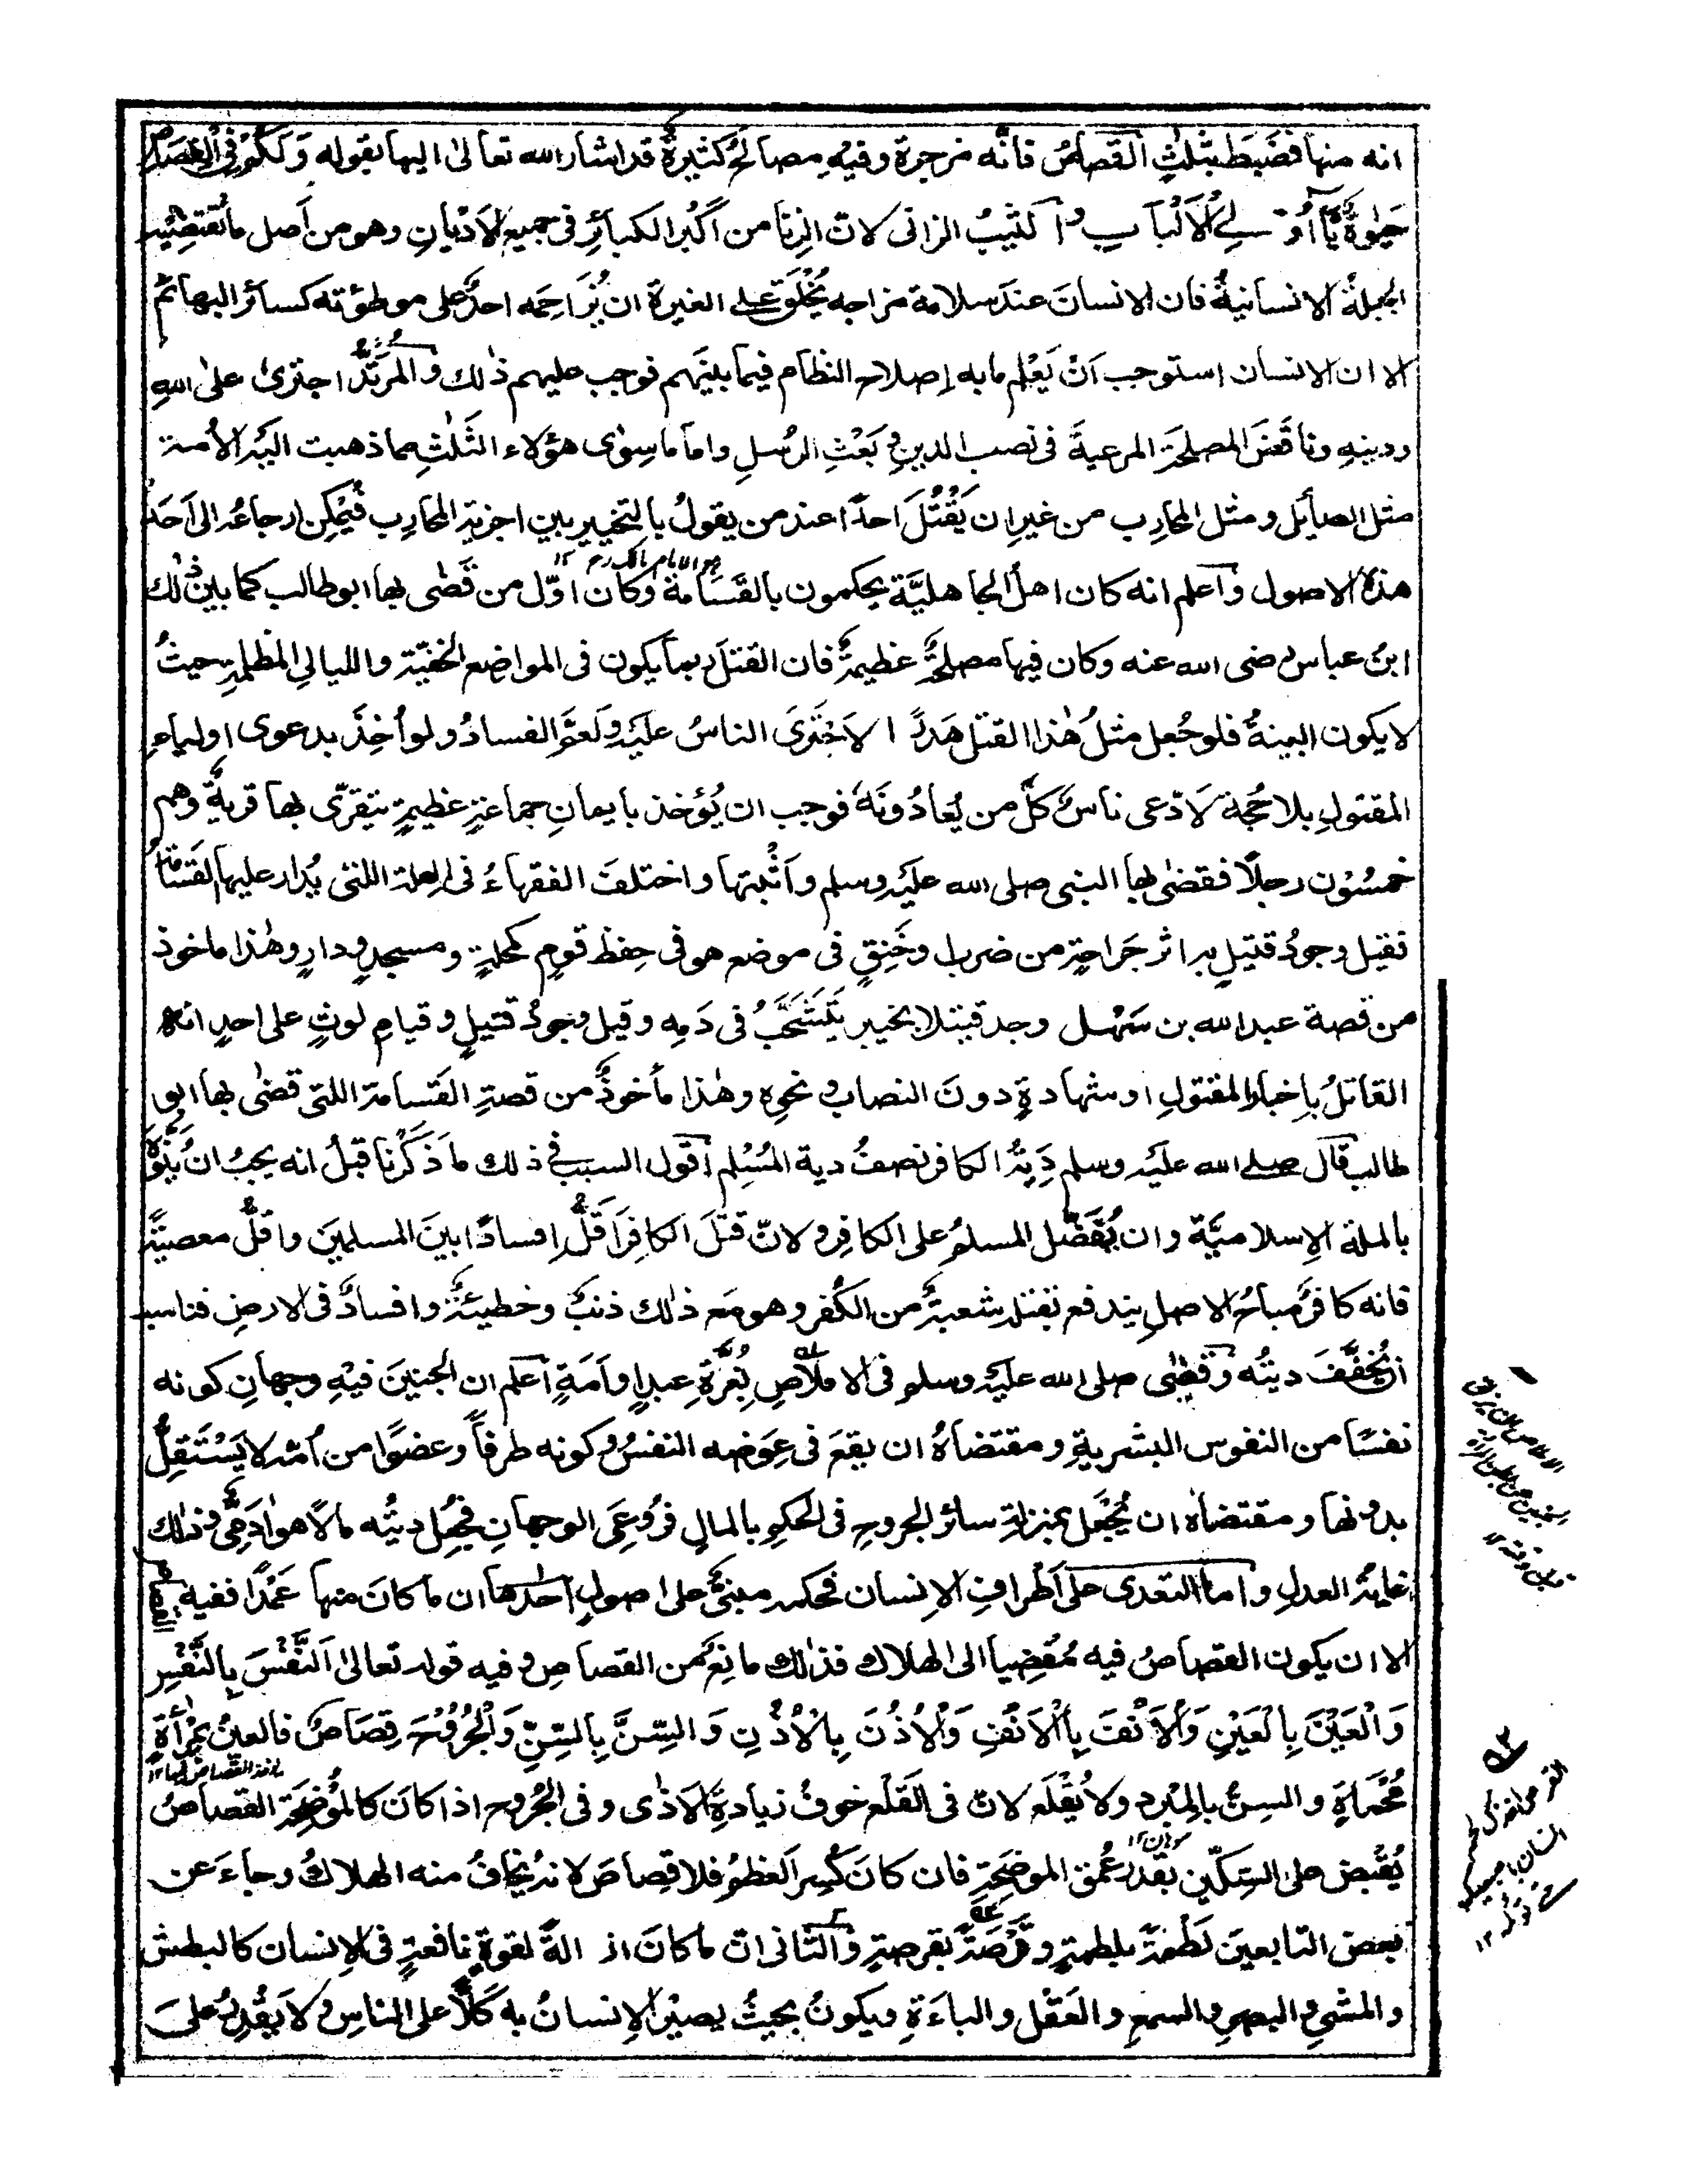 انه منها فضَبَطَ بثلثٍ القصاصُ فانَّه مزجرة وفيهِ مصالحُ كثيرةٌ قد اشار الله تعالىٰ اليها بقوله وَلَكُمْ فِي الْقِصَاصِ
حَيٰوةٌ يَّآ اُوْلِي الْاَلْبَابِ و الثيّبُ الزانى لانّ الزنا من اكبَر الكبائرِ فى جميع الاديانِ وهو من اصل ما تقتضيه
الجبلةُ الانسانيةُ فان الانسانَ عند سلامة مزاجه يُخْلَق على الغيرة ان يُزاحِمَه احدٌ على موطوئته كسائر البهائم
الا ان الانسان استوجب اَنْ يَعْلم ما به إصلاح النظام فيما بينَهم فوجب عليهم ذٰلك و المرتدُّ اجترئ على اللهِ
ودينهِ وناقَضَ المصلحةَ المرعيةَ فى نصب الدين وبَعْثِ الرُسلِ واما ما سِوٰى هؤلاء الثَلٰثِ مما ذهبت اليه الأمة
مثل الصائل و مثل المحارِب من غير ان يَقْتُلَ احدًا عند من يقولُ بالتخيير بين اجزية المحارب فيُمْكِن ارجاعُه الى اَحَدِ
هو الامام مالك رح ١٢
هذهِ الاصول واعلم انه كان اهلُ الجاهليَّة يحكمون بالقَسَامة وكان اوّل من قَضٰى بها ابوطالب كما بيّن ذٰلك
ابنُ عباس رضى الله عنه وكان فيها مصلحةٌ عظيمةٌ فان القتلَ ربما يكون فى المواضع الخفيّة والليالىِ المظلمةِ حيثُ
لا يكون البينةُ فلو جُعل مثلُ هٰذا القتل هَدرًا لاجْتَرَى الناسُ عليه ولَعَمَّ الفسادُ ولو اُخِذَ بدعوى اولياء
المقتولِ بلا حُجة لَادّعى ناسٌ كلَّ من يُعادُونَه فوجب ان يُؤخذ بايمانِ جماعةٍ عظيمةٍ تتقرّى بها قريةٌ وهم
خمسُوْن رجلًا فقضٰى بها النبى صلى الله عليه وسلم واَثْبتها واختلفَ الفقهاءُ فى العلة اللتى يُدار عليها القَسَامة
فقيل وجودُ قتيلٍ به اثر جَراحةٍ من ضرب او خَنِقٍ فى موضع هو فى حِفظ قومٍ كمحلةٍ ومسجدٍ ودارٍ وهٰذا ماخوذ
من قصة عبد الله بن سَهْل وجد قتيلا بخيبر يَتَشَحَّطُ فى دَمِه وقيل وجودُ قتيلٍ وقيام لوثٍ على احدٍ انه
القاتلُ بإخبار المقتولِ او شهادةٍ دونَ النصاب ونحوِه وهٰذا مأخوذٌ من قصةِ القَسامة اللتى قضٰى بها ابو
طالب قال صلى الله عليه وسلم دِيةُ الكافر نصفُ دية المُسْلِم اقول السبب فى ذلك ما ذَكَرْنا قبلُ انه يجبُ ان يُنَوَّهَ
بالملة الإسلاميَّة وان يُفَضَّل المسلمُ على الكافِر ولانّ قتلَ الكافر اَقَلُّ إفسادًا بينَ المسلمينَ واقلُّ معصيةً
فانه كافرٌ مباحُ الاصلِ يندفع بقتله شعبةٌ من الكُفر وهو مَعَ ذٰلك ذنبٌ وخطيئةٌ وافسادٌ فى الارضِ فناسب
ان يُخفَّفَ ديتُه وقضٰى صلى الله عليه وسلم فى الاملاصِ بِغُرَّةٍ عبدٍ او اَمَةٍ اعلم ان الجنينَ فيهِ وجهانِ كونه
نفسًا من النفوس البشريةِ ومقتضاهُ ان يقعَ فى عِوَضه النفسُ وكونه طرفًا وعضوًا من اُمّه لا يَسْتَقِلُّ
بدونها ومقتضاه ان يُجْعَل بمنزلةِ سائر الجروح فى الحكمِ بالمال فرُوعِىَ الوجهانِ فجُعِل ديتُه مالًا هو اٰدَمِىٌّ وذٰلك
غايةُ العدلِ واما التعدى على اَطرافِ الإنسان فحكمه مبنىٌّ على اصولٍ احدها ان ما كانَ منها عَمْدًا ففيه
الا ان يكون القصاصُ فيه مُفْضِيا الى الهلاك فذٰلك مانِعٌ من القصاصِ وفيه قوله تعالىٰ اَلنَّفْسَ بِالنَّفْسِ
وَالْعَيْنَ بِالْعَيْنِ وَالْاَنْفَ بِالْاَنْفِ وَالْاُذُنَ بِالْاُذُنِ وَالسِّنَّ بِالسِّنِّ وَالْجُرُوْحَ قِصَاصٌ فالعينُ بمِرْأةٍ
مُحْماةٍ والسِنُّ بالمِبْرد ولا يُقْلَع لانّ فى القَلْع خوفُ زيادةِ الاَذٰى وفى الجُروح اذا كانَ كالمُوْضِحَة القصاصُ
يُقْبض على السِّكِّين بقدر عُمقِ الموضِحةِ فان كانَ كُسِر العَظْمُ فلا قِصاصَ لانه يُخافُ منه الهلاكُ وجاءَ عن
بعض التابعينَ لَطْمةٌ بلطمةٍ وقَرْصَةٌ بقرصةٍ والثانى انّ ما كانَ ازالةً لقوةٍ نافعةٍ فى الإنسان كالبطش
والمشىِ والبصرِ والسمعِ والعَقْل والباءَةِ ويكونُ بحيثُ يصيْر الإنسانُ به كَلًّا على الناسِ ولا يَقْدِرُ على